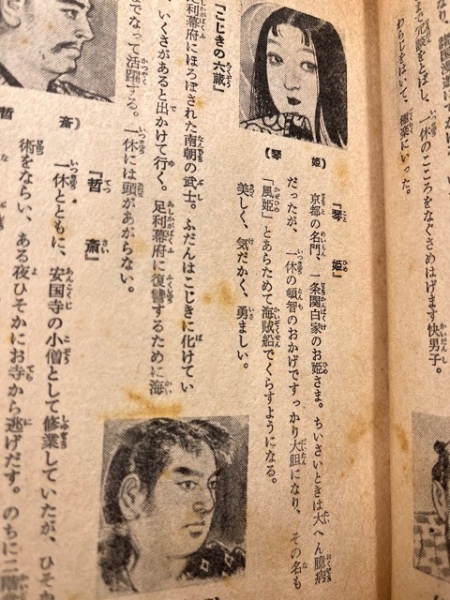 なり、諸国
まで冗談をとばし、一休のこころをなぐさめはげます快男子。
わらじをはいて、極楽にいった。
(琴姫)
『琴姫』
京都の名門、一条関白家のお姫さま。ちいさいときは大へん臆病
だったが、一休の頓智のおかげですっかり大胆になり、その名も
「風姫」とあらためて海賊船でくらすようになる。
美しく、気だかく、勇ましい。
『こじきの六蔵』
足利幕府にほろぼされた南朝の武士。ふだんはこじきに化けてい
、いくさがあると出かけて行く。足利幕府に復讐するために海
までなって活躍する。一休には頭があがらない。
(哲斎)
『哲斎』
一休とともに、安国寺の小僧として修業していたが、ひそか
術をならい、ある夜ひそかにお寺から逃げだす。のちに二階